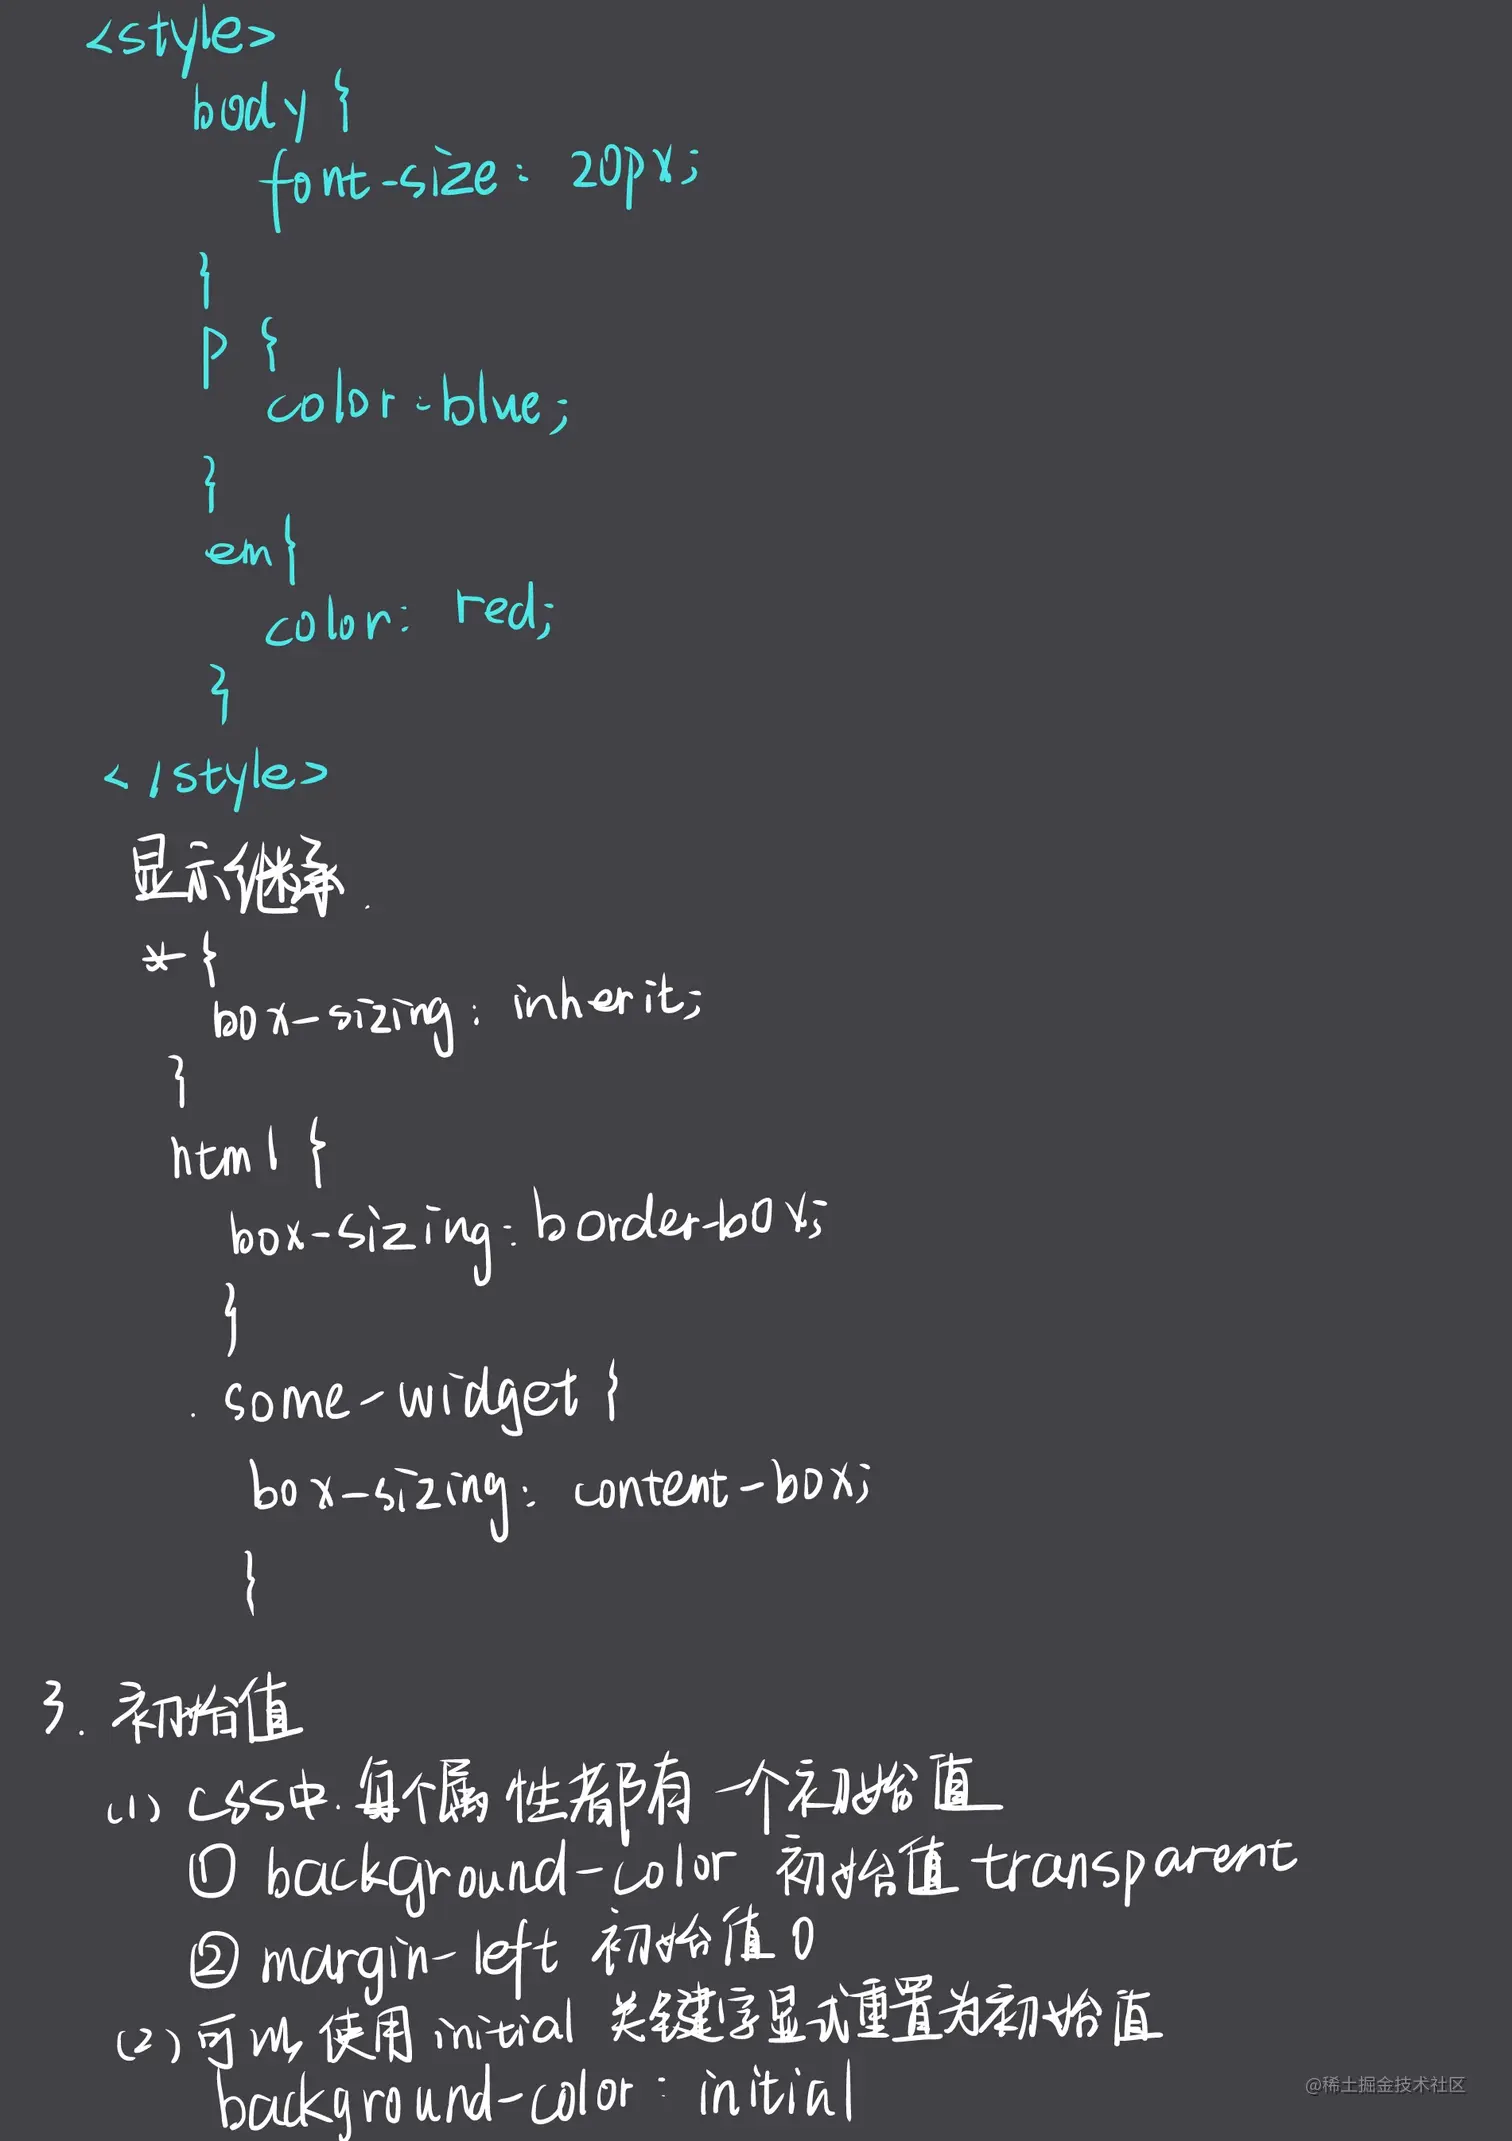 <style>
body {
font-size: 20px;
}
p {
color: blue;
}
em{
color: red;
}
</style>
显示继承.
* {
box-sizing: inherit;
}
html {
box-sizing: border-box;
}
.some-widget {
box-sizing: content-box;
}
3. 初始值
(1) CSS中.每个属性都有一个初始值
① background-color 初始值 transparent
② margin-left 初始值 0
(2) 可以使用 initial 关键字显式重置为初始值
background-color: initial
@稀土掘金技术社区